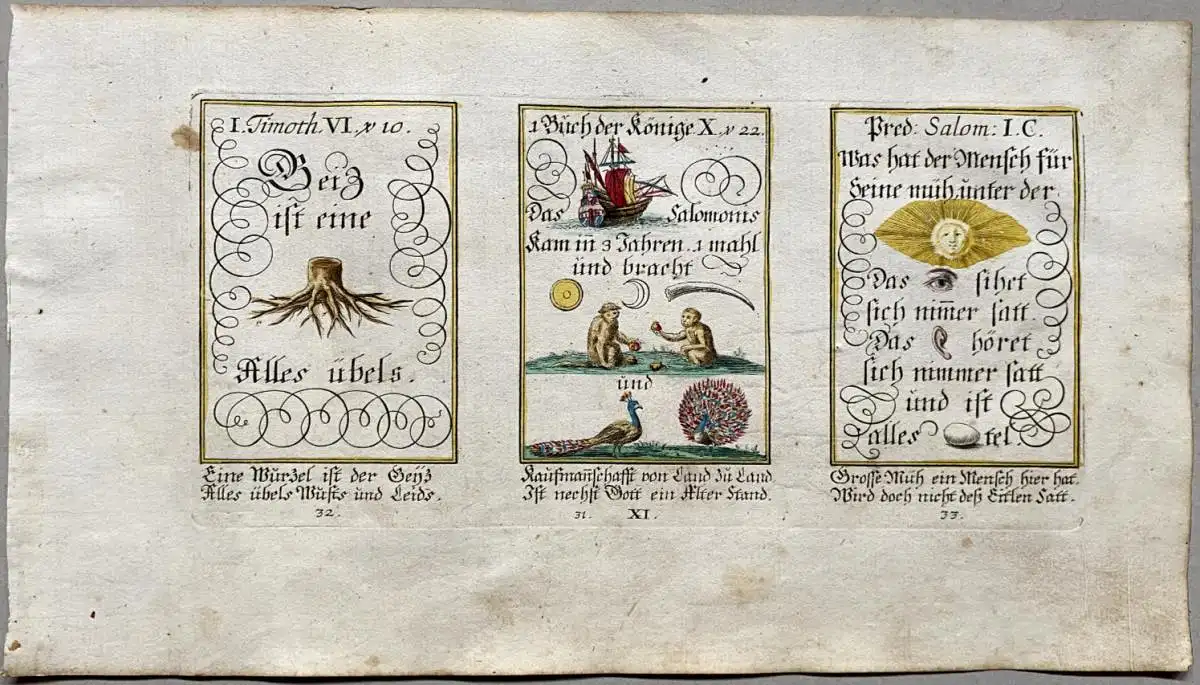 I. Timoth. VI. ℣ 10.
Geiz
ist eine
Alles übels.
Eine Würzel ist der Geÿz
Alles übels Wusts und Leids.
32.
1 Büch der Könige X. ℣ 22.
Das Salomonis
Kam in̄ 3 Jahren. 1 mahl
und bracht
und
Kaufmañschafft von Land zü Land
Ist nechst Gott ein Alter Stand.
31. XI.
Pred: Salom: I. C.
Was hat der Mensch für
Seine müh unter der
Das sihet
sich nim̄er satt.
Das höret
sich nimmer satt
und ist
alles tel.
Grosse Müh ein Mensch hier hat.
Wird doch nicht deß Eitlen Satt.
33.